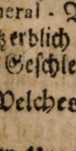 neral-
erblich
Geschle
Welches